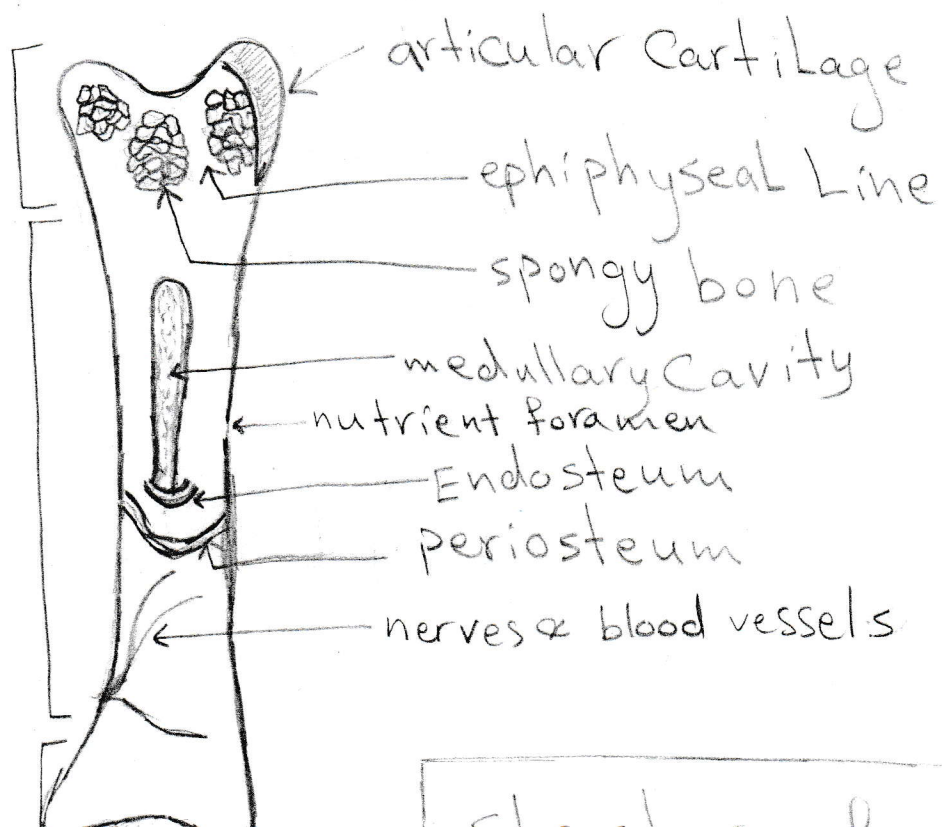 articular Cartilage
ephiphyseal Line
spongy bone
medullary Cavity
nutrient foramen
Endosteum
periosteum
nerves & blood vessels